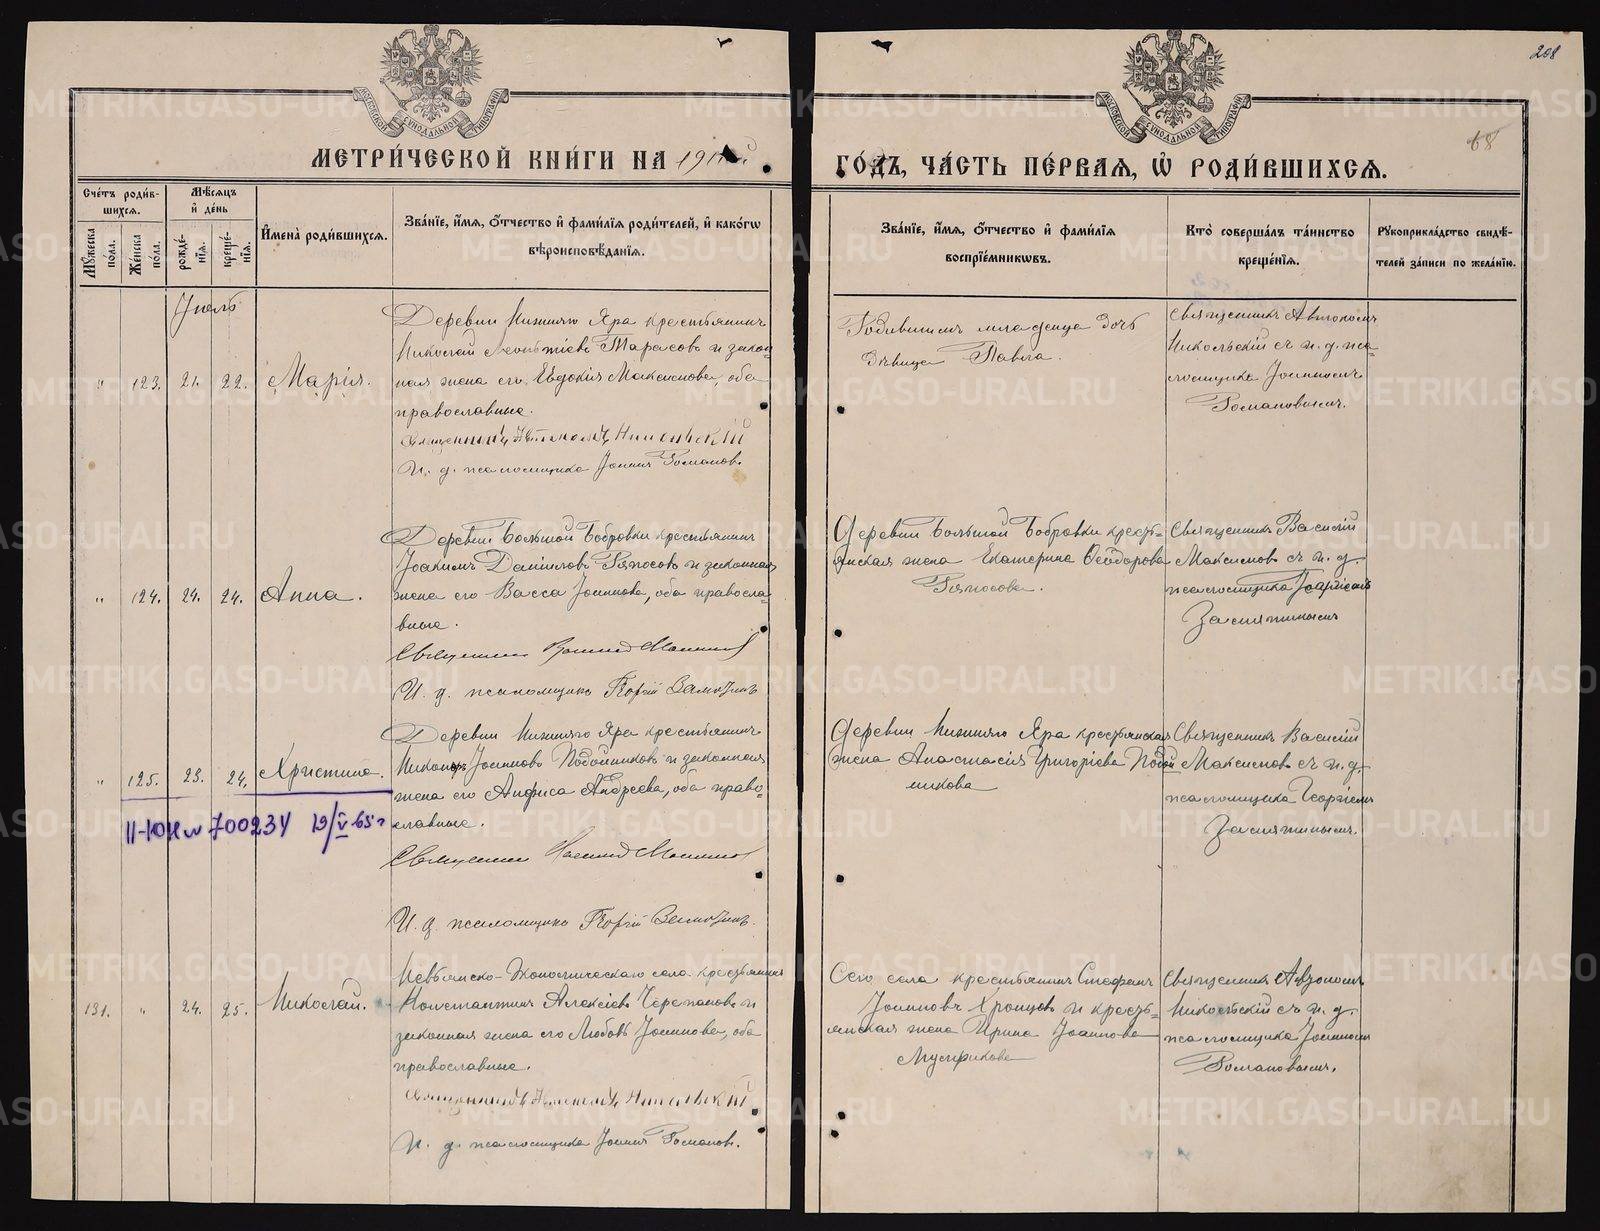 208
68
МОСКОВСКОЙ СѴНОДАЛЬНОЙ ТИПОГРАФІИ
МОСКОВСКОЙ СѴНОДАЛЬНОЙ ТИПОГРАФІИ
МЕТРИ́ЧЕСКОЙ КНИ́ГИ НА 191
ГО́ДЪ, ЧА́СТЬ ПЕ́РВАЯ, Ѡ҆ РОДИ́ВШИХСЯ.
Сче́тъ роди́в-
шихся.
Мѣ́сяцъ
и҆ де́нь
Мꙋ́жеска по́ла.
Же́нска по́ла.
рожде́-
нїя.
креще́-
нїя.
И҆мена̀ роди́вшихся.
Зва́нїе, и҆́мя, ѻ҆́тчество и҆ фами́лїя роди́телей, и҆ како́гѡ
вѣроисповѣ́данїя.
Зва́нїе, и҆́мя, ѻ҆́тчество и҆ фами́лїя
воспрїе́мникѡвъ.
Кто̀ соверша́лъ та́инство
креще́нїя.
Рꙋкоприкла́дство свидѣ́-
телей за́писи по жела́нїю.
Іюль
" 123. 21. 22. Марія.
Деревни Нижняго Яра крестьянинъ
Николай Леонтіевъ Тарасовъ и закон-
ная жена его Евдокія Максимова, оба
православные.
Священникъ Автономъ Никольскій
И. д. псаломщика Іоаннъ Романовъ.
Родившейся младенца дочь
дѣвица Павла.
Священникъ Автономъ
Никольскій съ и. д. пса-
ломщика Іоанномъ
Романовымъ.
" 124. 24. 24. Анна.
Деревни Большой Бобровки крестьянинъ
Іоакимъ Даніиловъ Ряпосовъ и законная
жена его Васса Іоаннова, оба правосла-
вные.
Священникъ Василій Максимовъ
И. д. псаломщика Георгій Замятинъ
Деревни Большой Бобровки кресть-
янская жена Екатерина Ѳеодорова
Ряпосова.
Священникъ Василій
Максимовъ съ и. д.
псаломщика Георгіемъ
Замятинымъ
" 125. 23. 24. Христина.
II-ЮН № 700234 19/V-65 г
Деревни Нижняго Яра крестьянинъ
Никоноръ Іоанновъ Подойниковъ и законная
жена его Анфиса Андреева, оба право-
славные.
Священникъ Василій Максимовъ
И. д. псаломщика Георгій Замятинъ.
Деревни Нижняго Яра крестьянская
жена Анастасія Григоріева Подой-
никова
Священникъ Василій
Максимовъ съ и. д.
псаломщика Георгіемъ
Замятинымъ.
131. " 24. 25. Николай.
Невьянско-Экономическаго села крестьянинъ
Константинъ Алексіевъ Черепановъ и
законная жена его Любовь Іоаннова, оба
православные.
Священникъ Автономъ Никольскій
И. д. псаломщика Іоаннъ Романовъ.
Сего села крестьянинъ Стефанъ
Іоанновъ Хромцовъ и кресть-
янская жена Ирина Іоаннова
Священникъ Автономъ
Никольскій съ и. д.
псаломщика Іоанномъ
Романовымъ.
METRIKI.GASO-URAL.RU